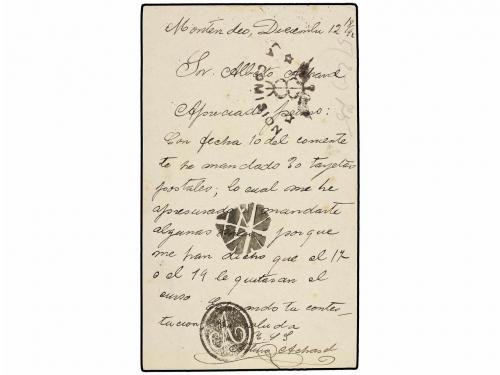 Montevideo, Diciembre 12
Sr. Alberto Achard
LA COMISION
Apreciado primo:
Con fecha 10 del corriente
te he mandado 30 tarjetas
postales; lo cual me he
apresurado mandarte
algunas porque
me han dicho que el 17
o el 19 le quitaran el
curso
tu contes-
tacion saluda
Achard